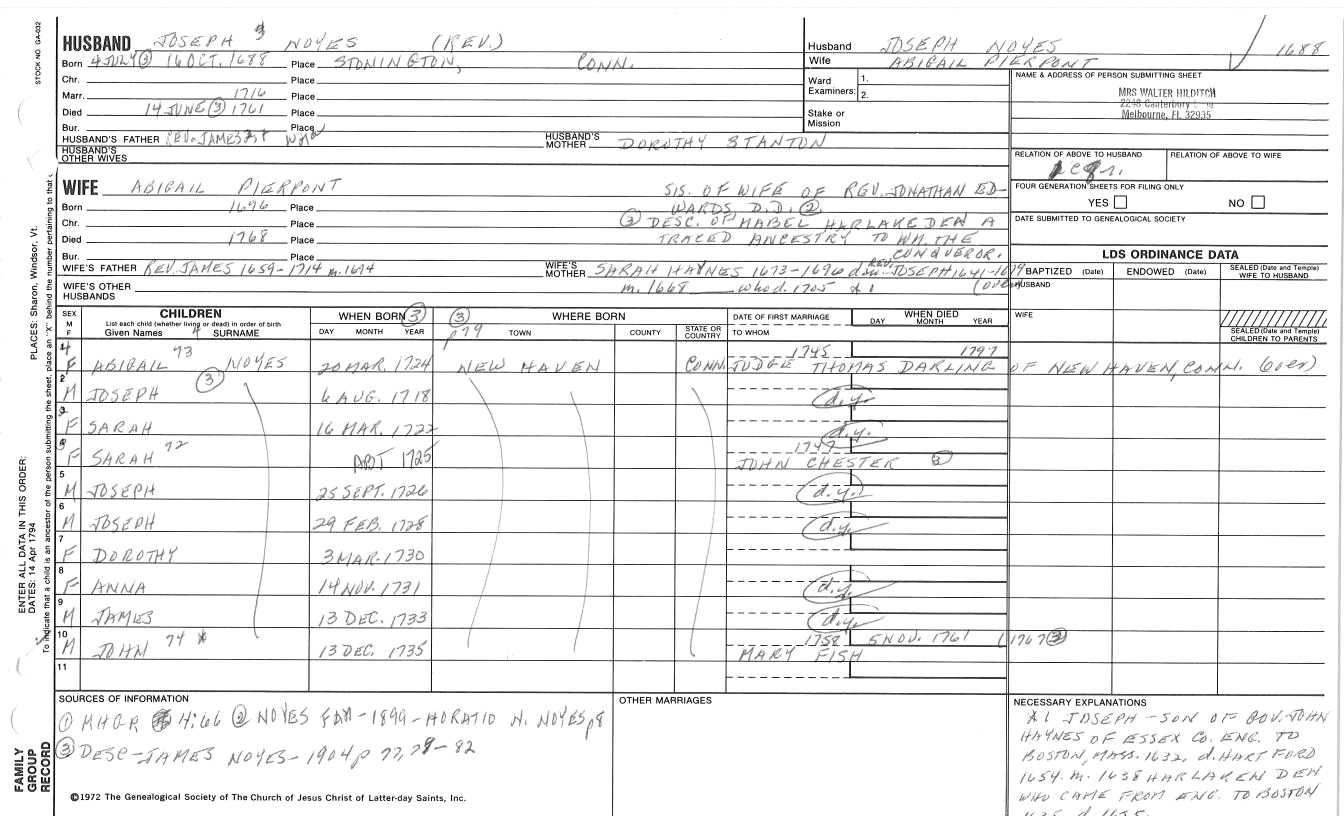 STOCK NO. GA-032
PLACES: Sharon, Windsor, Vt.
ENTER ALL DATA IN THIS ORDER:
DATES: 14 Apr 1794
To indicate that a child is an ancestor of the person submitting the sheet, place an "X" behind the number pertaining to that
FAMILY GROUP RECORD
HUSBAND JOSEPH 3 NOYES (REV.)
Born 4 JULY ③ 16 OCT. 1688 Place STONINGTON, CONN.
Chr. Place
Marr. 1716 Place
Died 14 JUNE ③ 1761 Place
Bur. Place
HUSBAND'S FATHER REV. JAMES HUSBAND'S MOTHER DOROTHY STANTON
HUSBAND'S OTHER WIVES
Husband JOSEPH NOYES 1688
Wife ABIGAIL PIERPONT
Ward 1.
Examiners: 2.
Stake or Mission
NAME & ADDRESS OF PERSON SUBMITTING SHEET
MRS WALTER HILDITCH
2248 Canterbury
Melbourne, FL 32935
RELATION OF ABOVE TO HUSBAND RELATION OF ABOVE TO WIFE
FOUR GENERATION SHEETS FOR FILING ONLY
YES NO
DATE SUBMITTED TO GENEALOGICAL SOCIETY
WIFE ABIGAIL PIERPONT SIS. OF WIFE OF REV. JONATHAN ED-
Born 1696 Place WARDS D.D. ②
Chr. Place ③ DESC. OF MABEL HARLAKEDEN A
Died 1768 Place TRACED ANCESTRY TO WM. THE
Bur. Place CONQUEROR.
WIFE'S FATHER REV. JAMES 1659-1714 m. 1694 WIFE'S MOTHER SARAH HAYNES 1673-1696 REV. JOSEPH 1641-1679
WIFE'S OTHER HUSBANDS m. 1668 who d. 1705 *1 (over)
LDS ORDINANCE DATA
BAPTIZED (Date) ENDOWED (Date) SEALED (Date and Temple) WIFE TO HUSBAND
HUSBAND
WIFE
SEALED (Date and Temple) CHILDREN TO PARENTS
SEX M F
CHILDREN
List each child (whether living or dead) in order of birth
Given Names SURNAME
WHEN BORN ③
DAY MONTH YEAR
③ p79 WHERE BORN
TOWN COUNTY STATE OR COUNTRY
DATE OF FIRST MARRIAGE
TO WHOM
WHEN DIED
DAY MONTH YEAR
4 F ABIGAIL 73 NOYES 20 MAR. 1724 NEW HAVEN CONN. 1745 1797 JUDGE THOMAS DARLING OF NEW HAVEN, CONN. (over)
2 M JOSEPH ③ 6 AUG. 1718 d.y.
F SARAH 16 MAR. 1722 d.y.
F SARAH 72 ABT 1725 1747 JOHN CHESTER ③
5 M JOSEPH 25 SEPT. 1726 d.y.
6 M JOSEPH 29 FEB. 1728 d.y.
7 F DOROTHY 3 MAR. 1730
8 F ANNA 14 NOV. 1731 d.y.
9 M JAMES 13 DEC. 1733 d.y.
10 M JOHN 74 * 13 DEC. 1735 1758 MARY FISH 5 NOV. 1761 (1767 ③
11
SOURCES OF INFORMATION
① H: 66 ② NOYES FAM-1899-HORATIO N. NOYES p8
③ DESC-JAMES NOYES-1904 p 77, 79-82
OTHER MARRIAGES
NECESSARY EXPLANATIONS
*1 JOSEPH-SON OF GOV. JOHN
HAYNES OF ESSEX CO. ENG. TO
BOSTON, MASS. 1632, d. HARTFORD
1654. m. 1638 HARLAKEN DEN
WHO CAME FROM ENG. TO BOSTON
©1972 The Genealogical Society of The Church of Jesus Christ of Latter-day Saints, Inc.